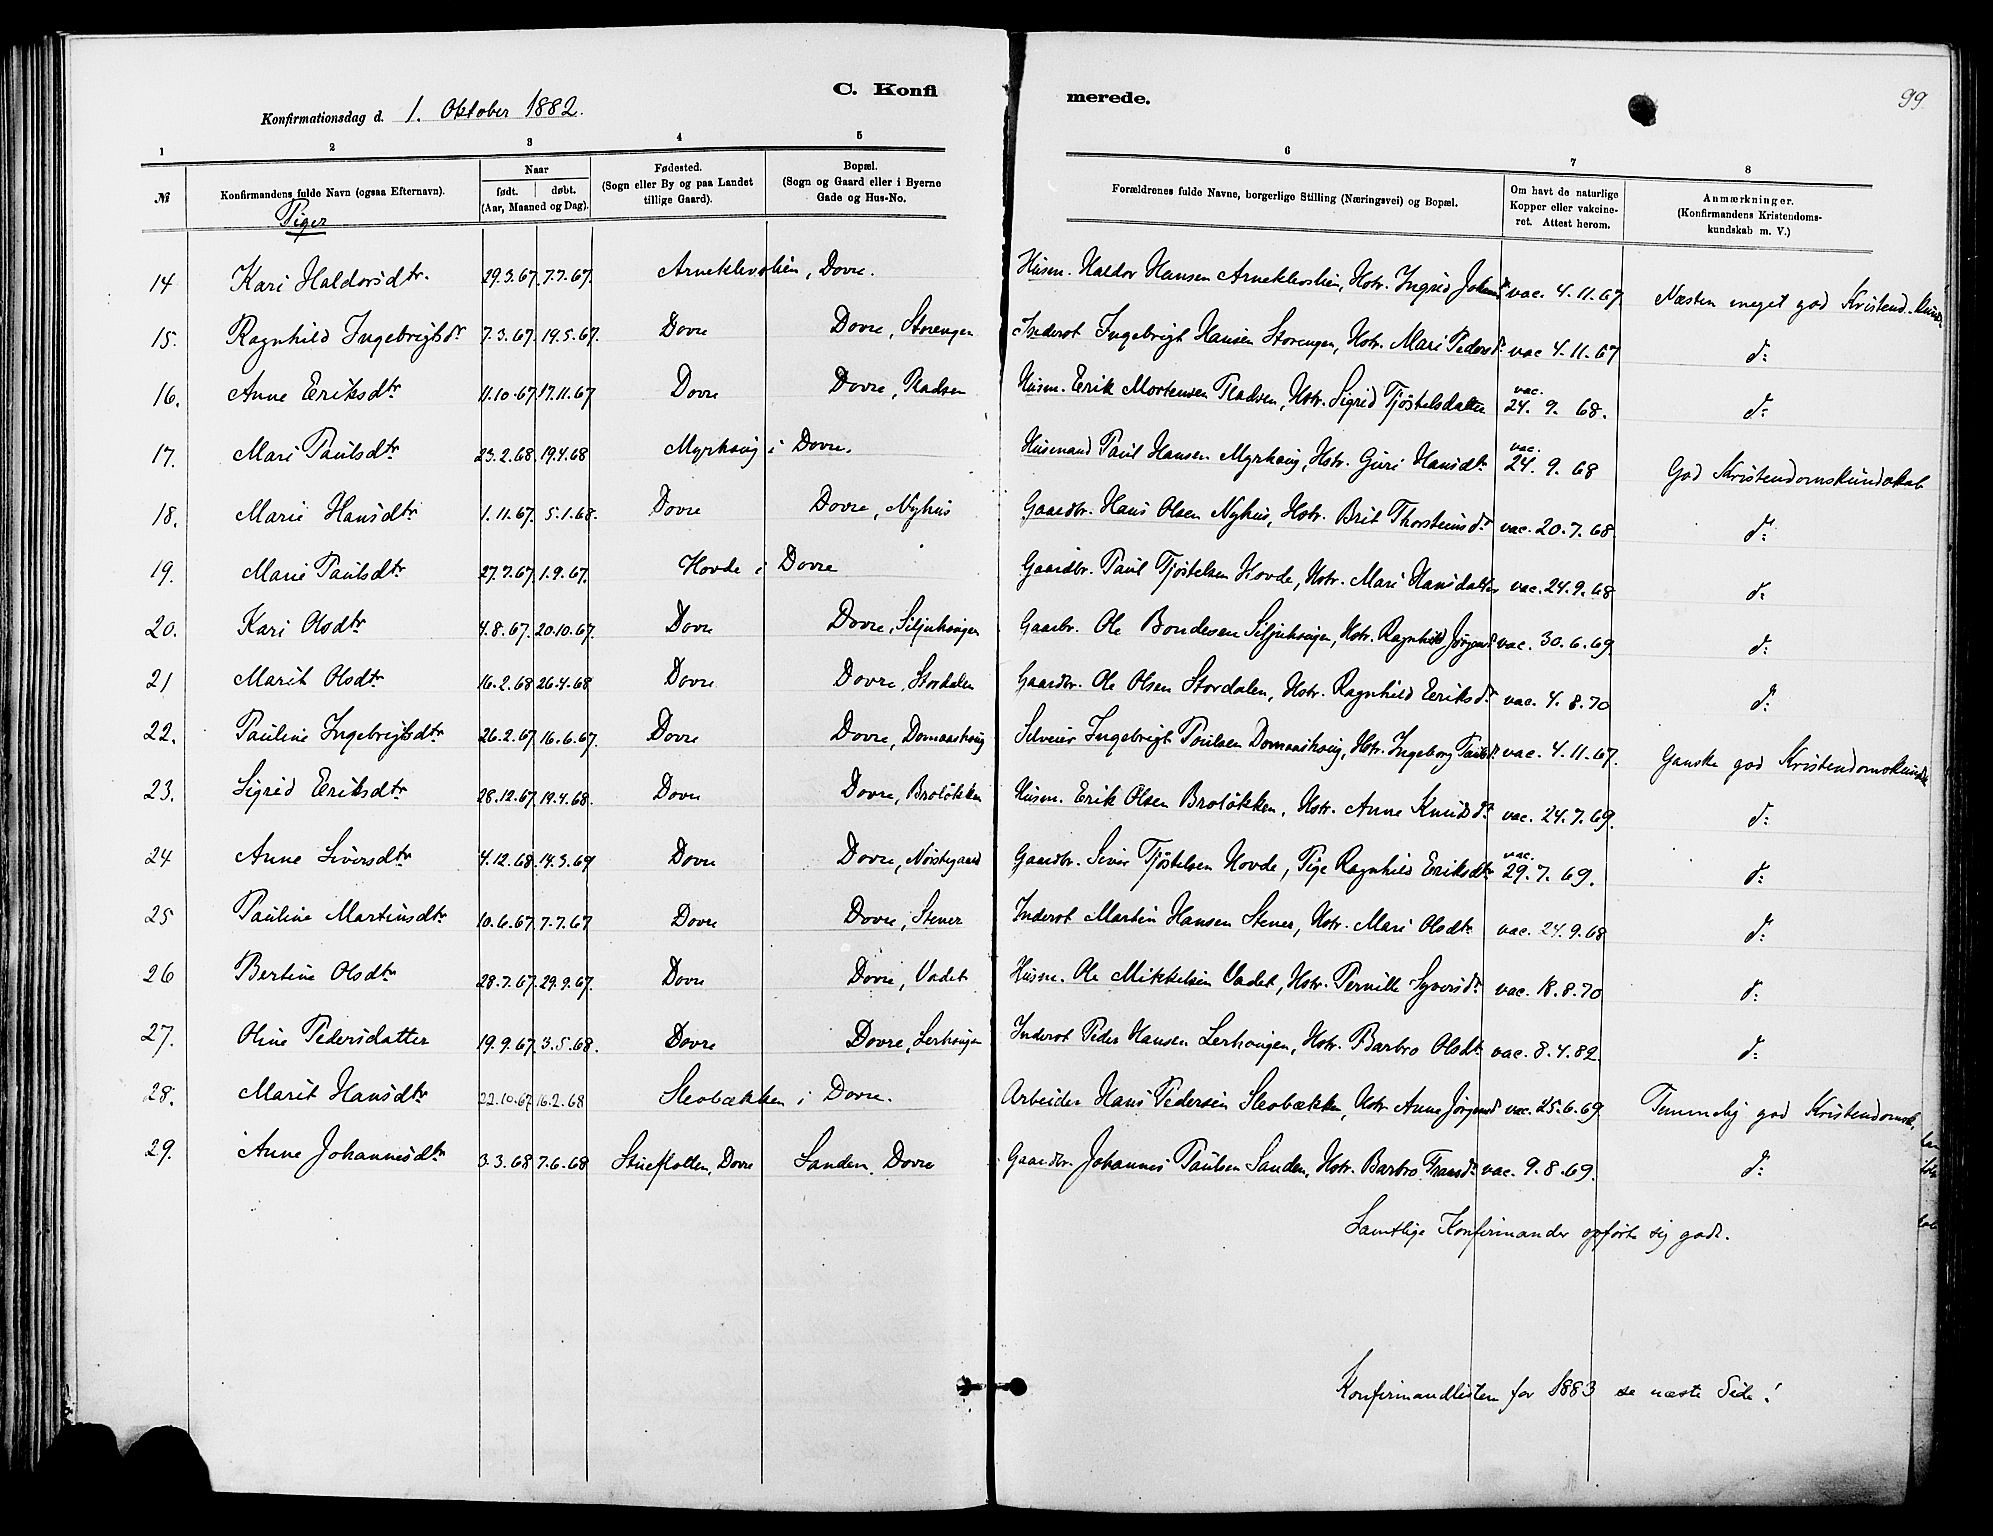 C. Konfi
merede.
99
Konfirmationsdag d. 1. Oktober 1882.
1 2 3 4 5 6 7 8
№
Konfirmandens fulde Navn (ogsaa Efternavn).
Piger
Naar
født. døbt.
(Aar, Maaned og Dag).
Fødested.
(Sogn eller By og paa Landet
tillige Gaard).
Bopæl.
(Sogn og Gaard eller i Byerne
Gade og Hus-No.
Forældrenes fulde Navne, borgerlige Stilling (Næringsvei) og Bopæl.
Om havt de naturlige
Kopper eller vakcine-
ret. Attest herom.
Anmærkninger.
(Konfirmandens Kristendoms-
kundskab m. V.)
14 Kari Haldorsdtr. 29.3.67. 7.7.67. Arneklevolien, Dovre. Husm. Haldor Hansen Arneklevlien, Hstr. Ingrid vac. 4.11.67 Næsten meget god Kristend.kundsk
15. Ragnhild Ingebrigtsdr 7.3.67. 19.5.67. Dovre Dovre, Storengen Inderst Ingebrigt Hansen Storengen, Hstr. Mari Pedersdr. vac 4.11.67 do:
16. Anne Eriksdtr 11.10.67 17.11.67 Dovre Dovre, Pladsen Husm. Erik Mortensen Pladsen, Hstr. Sigrid Tjøstelsdatter vac. 24. 9. 68. do:
17. Mari Paulsdtr 23.2.68. 19.4.68 Myrhaug i Dovre. Husmand Paul Hansen Myrhaug, Hstr. Guri Hansdtr vac. 24. 9. 68 God Kristendomskundskab
18. Marie Hansdtr 1.11.67. 5.1.68. Dovre Dovre, Nyhus Gaardbr. Hans Olsen Nyhus, Hstr. Brit Thorsteinsdr vac. 20.7.68. do:
19. Marie Paulsdtr 27.7.67. 1.9.67. Hovde i Dovre Gaardbr. Paul Tjøstelsen Hovde, Hstr. Mari Hansdatter vac. 24.9.68 do:
20. Kari Olsdtr 4.8.67. 20.10.67. Dovre Dovre, Siljuhaugen Gaarbr. Ole Bondesen Siljuhaugen, Hstr. Ragnhild Jørgensd vac. 30.6.69. do:
21 Marit Olsdtr 16.2.68 26.4.68 Dovre Dovre, Stordalen Gaardbr. Ole Olsen Stordalen, Hstr. Ragnhild Eriksdr vac. 4.8.70 do:
22. Pauline Ingebrigtsdtr 26.2.67. 16.6.67. Dovre Dovre, Domaashaug Selveier Ingebrigt Poulsen Domaashaug, Hstr. Ingeborg Paulsdr vac. 4.11.67. Ganske god Kristendomskundsk
23. Sigrid Eriksdtr 28.12.67 19.4.68. Dovre Dovre, Broløkken Husm. Erik Olsen Broløkken, Hstr. Anne Knudsdr vac. 24.7.69. do:
24 Anne Siversdtr 4.12.68. 14.3.69 Dovre Dovre, Nørstegaard Gaardbr. Siver Tjøstelsen Hovde, Pige Ragnhild Eriksdtr vac. 29.7.69. do:
25 Pauline Martinsdtr 10.6.67. 7.7.67 Dovre Dovre, Stener Inderst Martin Hansen Stener, Hstr. Mari Olsdtr vac. 24.9.68 do:
26 Bertine Olsdtr 28.7.67. 29.9.67. Dovre Dovre, Vadet Husm. Ole Mikkelsen Vadet, Hstr. Pernille Syversdr vac. 18.8.70 do:
27. Oline Pedersdatter 19.9.67. 3.5.68. Dovre Dovre, Lerhaugen Inderst Peder Hansen Lerhaugen, Hstr. Barbro Olsdtr vac. 8.4.82. do:
28. Marit Hansdtr 22.10.67 16.2.68 Sleobækken i Dovre. Arbeider Hans Pedersen Sleobækken, Hstr Anne Jørgensd vac. 25.6.69 Temmelig god Kristendomsk.
29. Anne Johannesdtr 3.3.68 7.6.68 Stueflotten, Dovre Sanden, Dovre Gaardbr. Johannes Paulsen Sanden, Hstr. Barbro Fransdr vac. 9.8.69. do:
Samtlige Konfirmander opførte sig godt.
Konfirmandlisten for 1883 se næste Side!